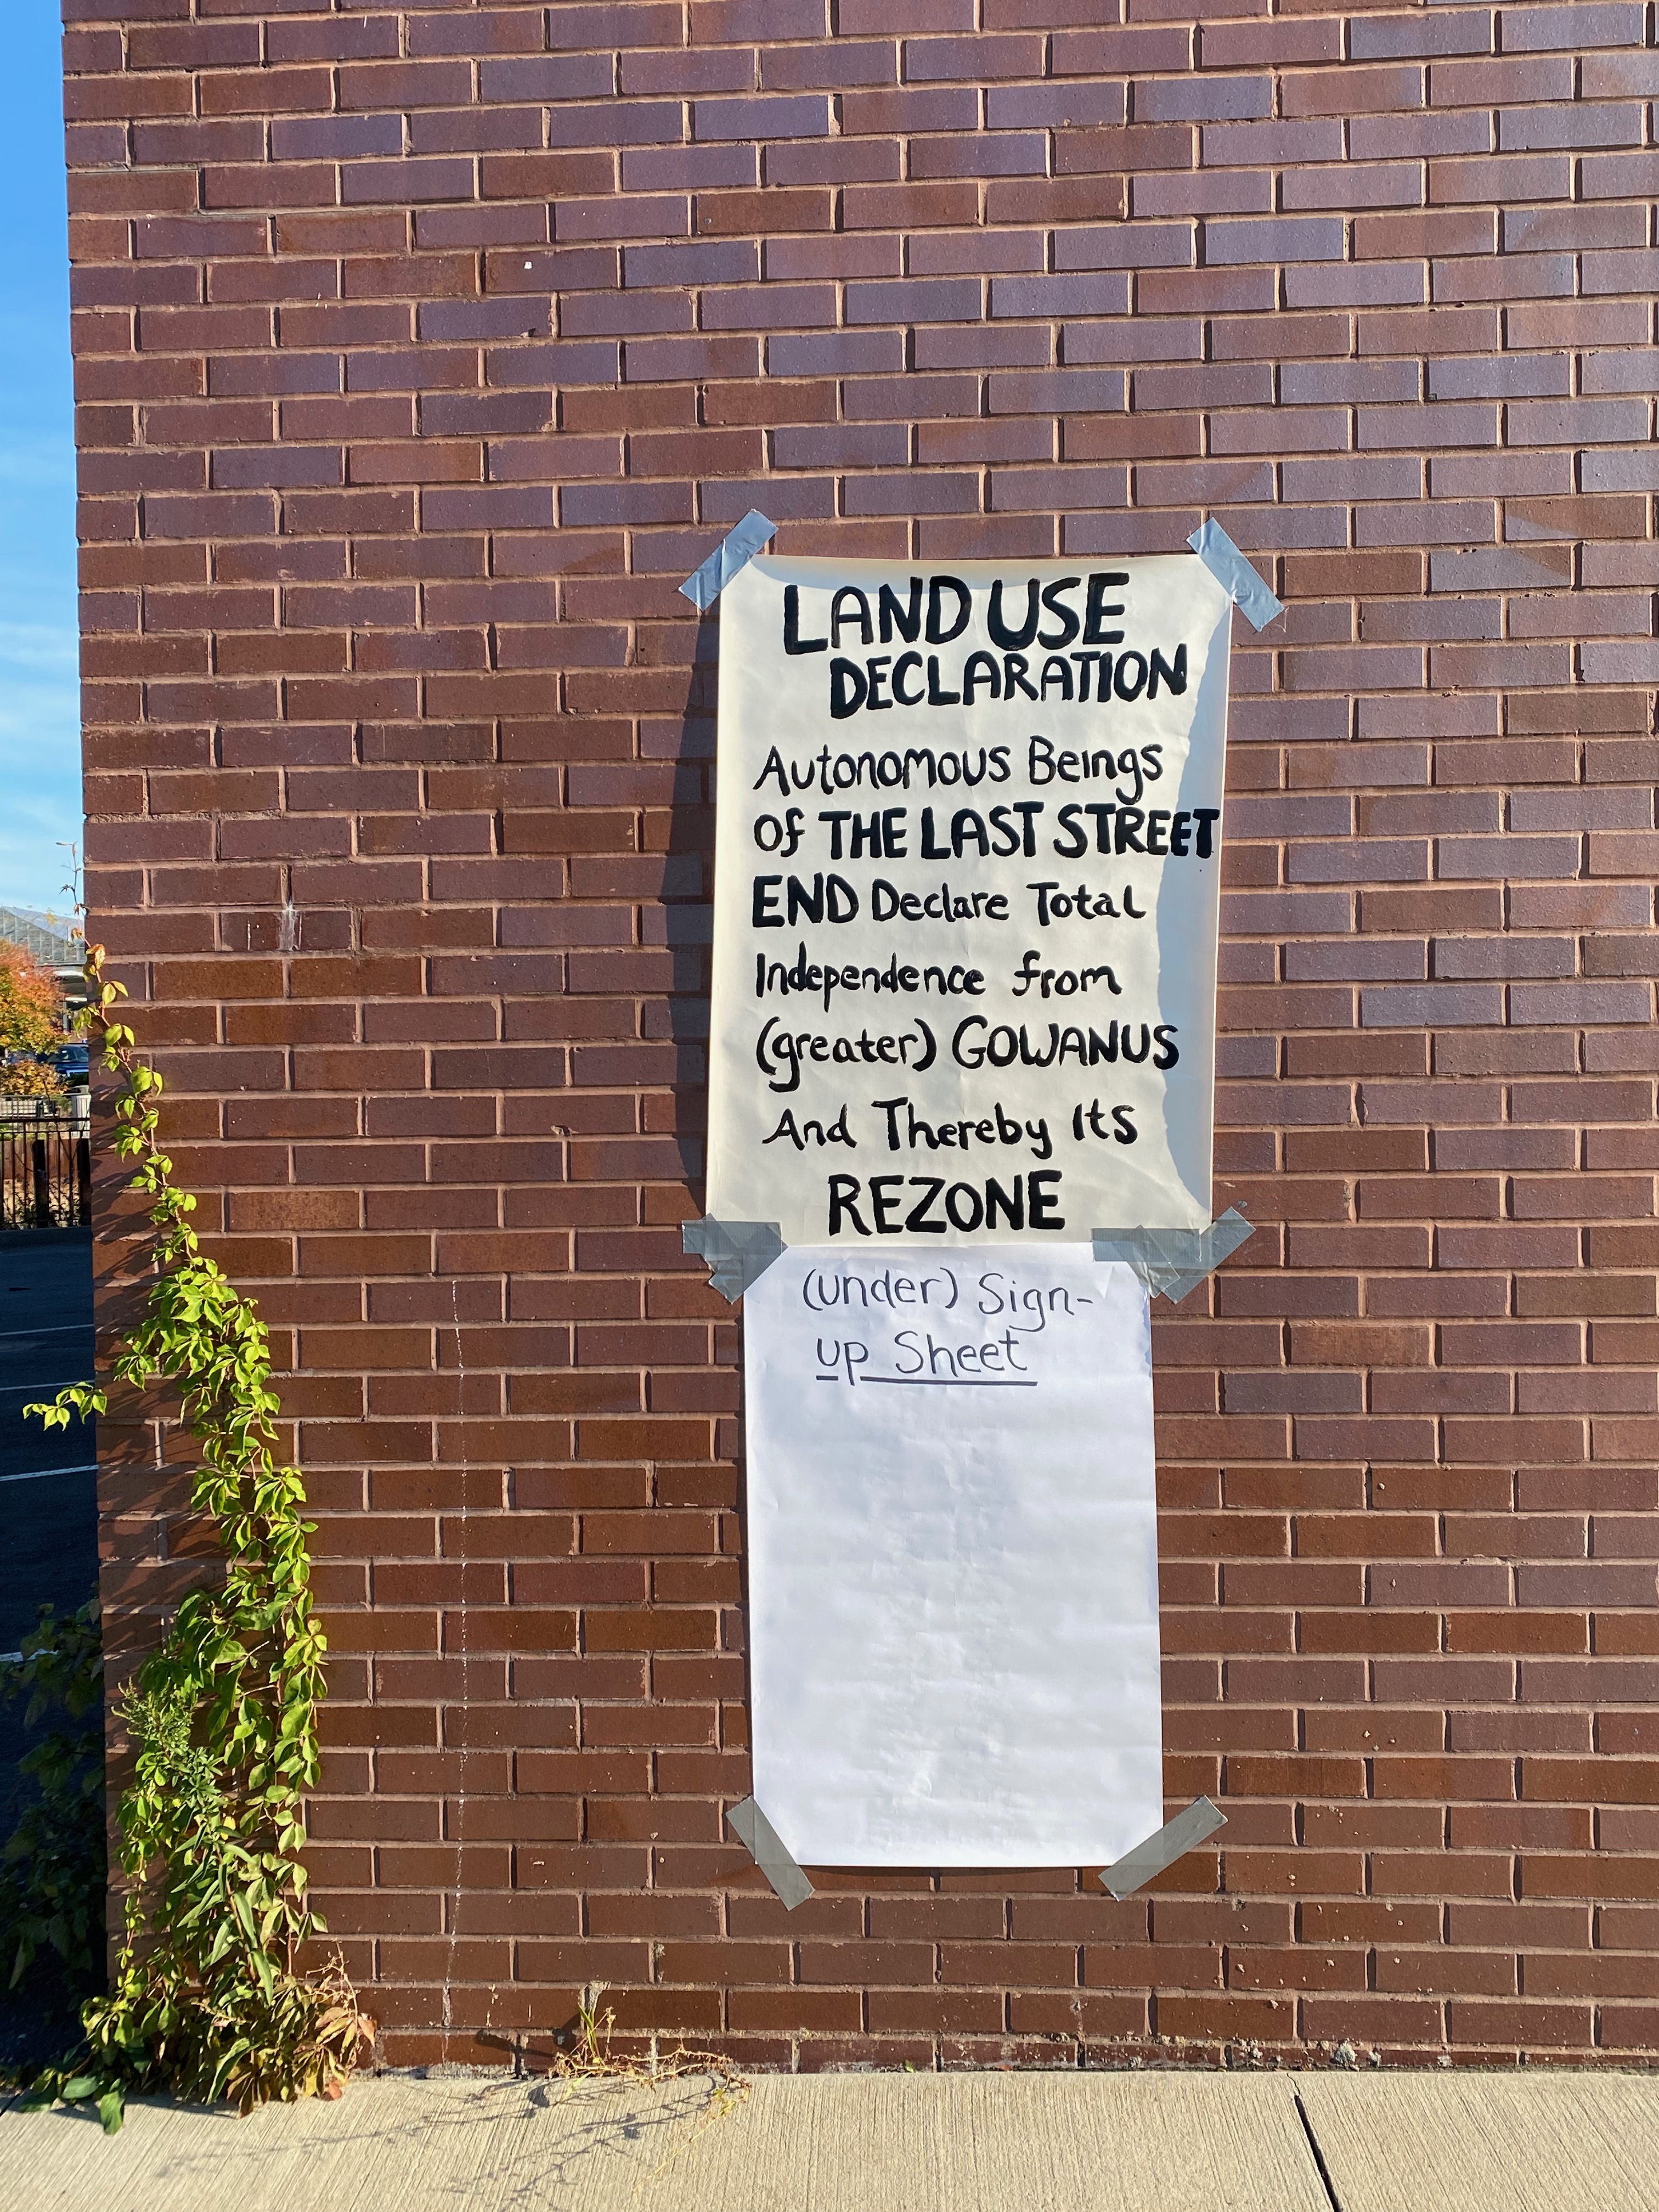 LAND USE
DECLARATION
Autonomous Beings
Of THE LAST STREET
END Declare Total
Independence from
(greater) GOWANUS
And Thereby Its
REZONE
(under) Sign-
up Sheet